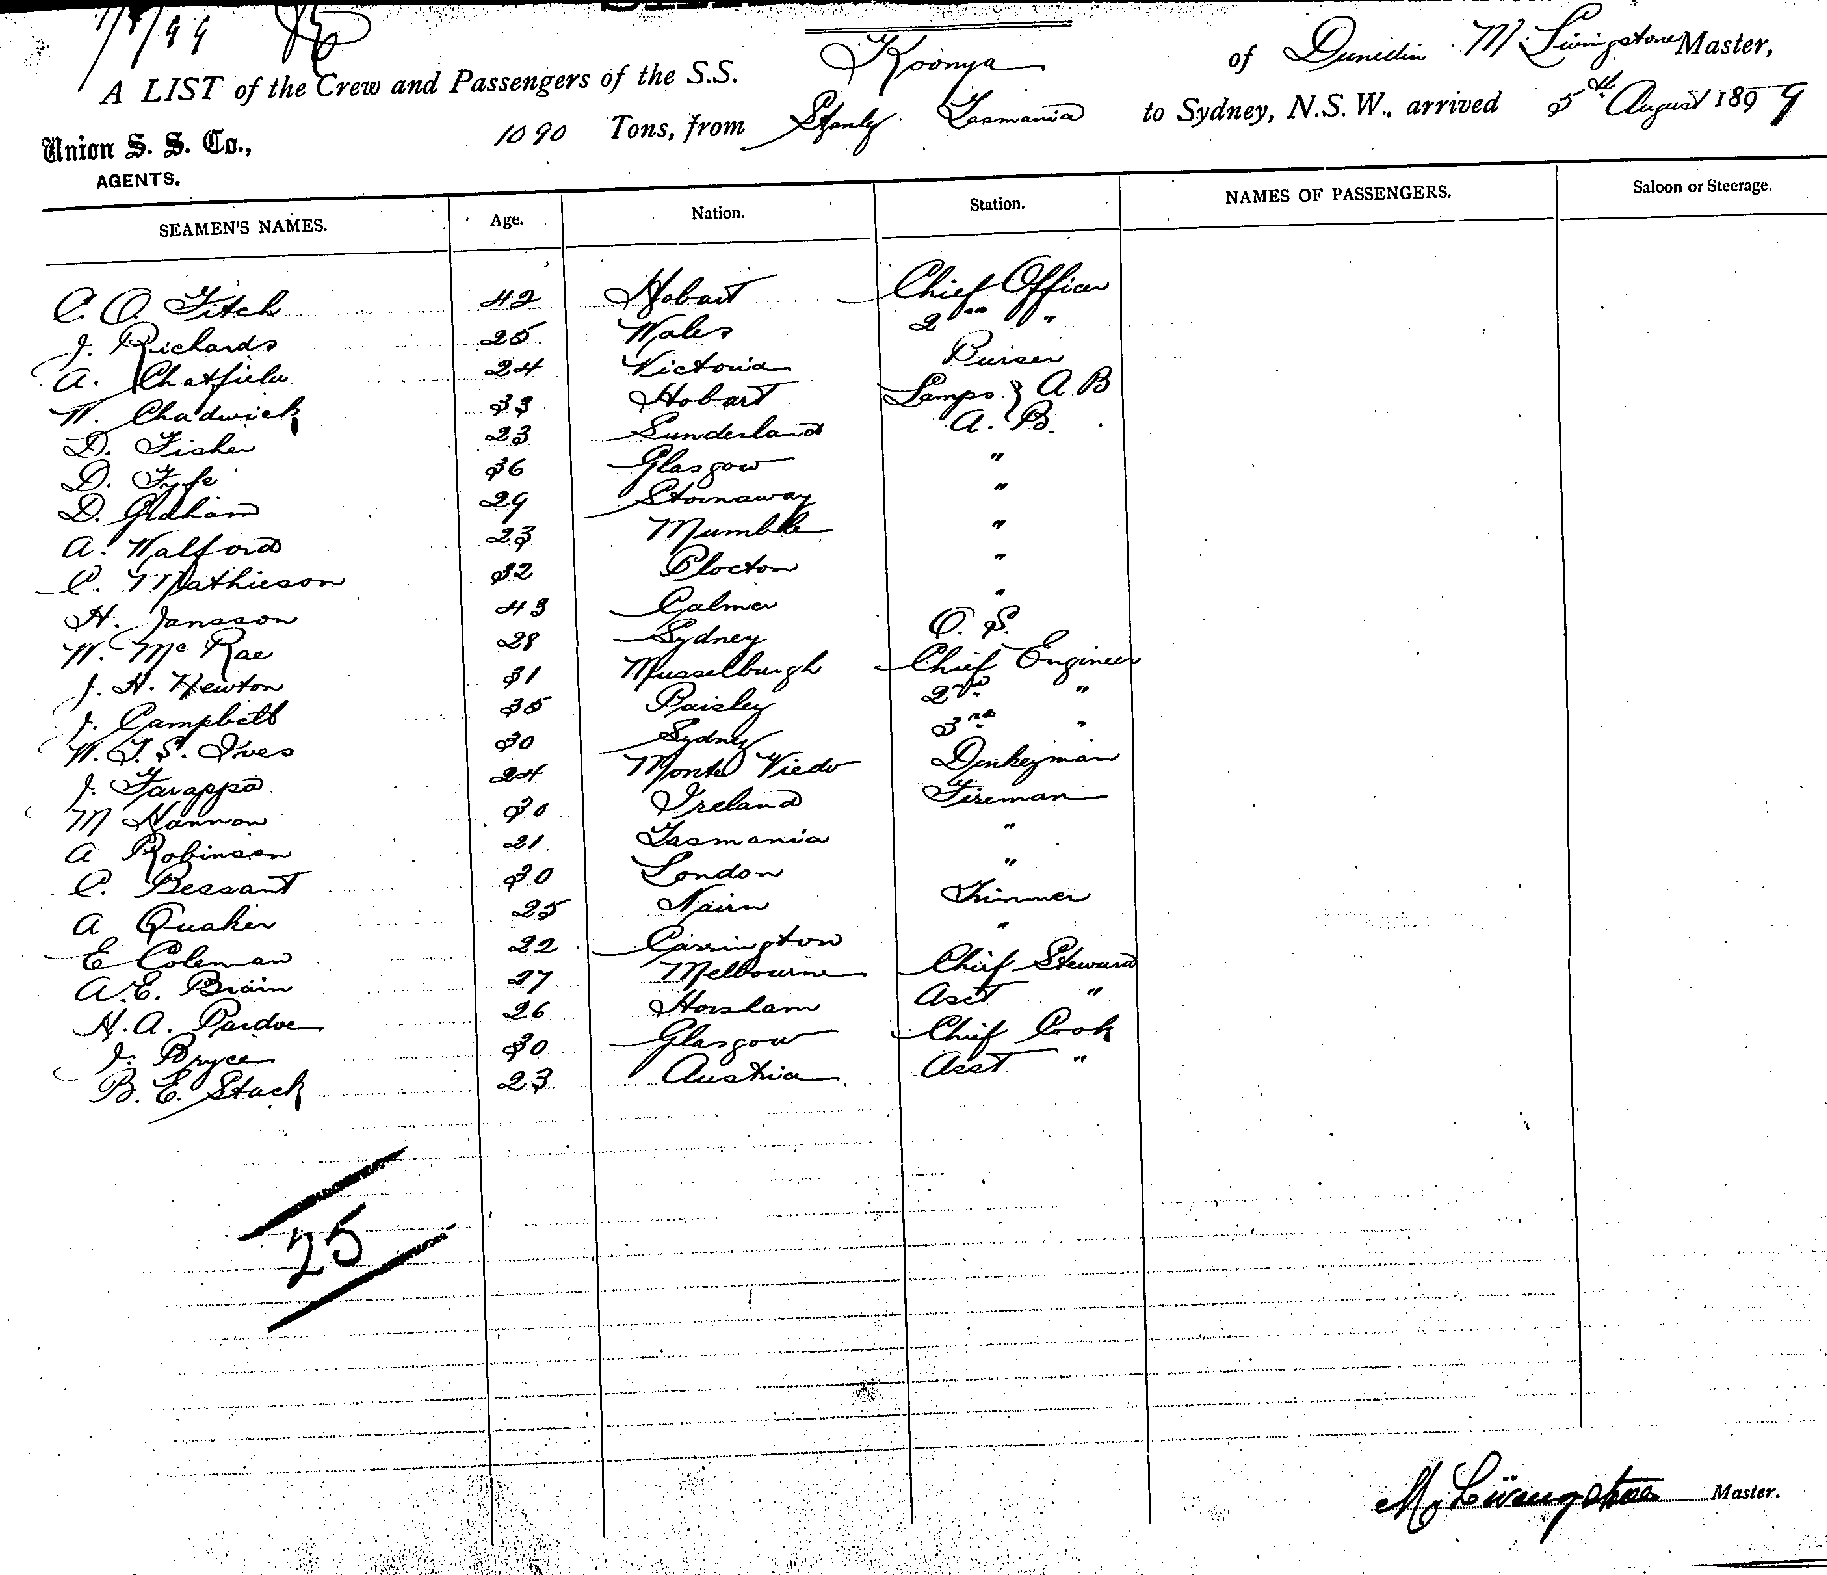 A LIST of the Crew and Passengers of the S.S. Koonya of Dunedin M. Livingstone Master,
Union S. S. Co., AGENTS. 1090 Tons, from Stanly Tasmania to Sydney, N.S.W., arrived 5th August 1899
SEAMEN'S NAMES. Age. Nation. Station. NAMES OF PASSENGERS. Saloon or Steerage.
C. O. Fitch 42 Hobart Chief Officer
J. Richards 25 Wales 2nd "
A. Chatfield 24 Victoria Purser
W. Chadwick 33 Hobart Lamps } A B
D. Fisher 23 Sunderland A. B.
D. Fyfe 36 Glasgow "
D. Graham 29 Stornaway "
A. Walford 23 Mumble "
C. Mathieson 32 Plocton "
H. Jansson 43 Calmer "
W. Mc Rae 28 Sydney O. S.
J. H. Newton 31 Musselburgh Chief Engineer
J. Campbell 35 Paisley 2nd "
W. T. S. Ives 30 Sydney 3rd "
J. Farappa 24 Monte Viedo Donkeyman
M Hannon 30 Ireland Fireman
A Robinson 21 Tasmania "
C. Bessant 30 London "
A Quaker 25 Nairn Trimmer
E Coleman 22 Carrington "
A. E. Brain 27 Melbourne Chief Steward
H. A. Pardoe 26 Horsham Asst "
J. Bryce 30 Glasgow Chief Cook
B. E. Stack 23 Austria Asst "
25
M. Livingstone Master.